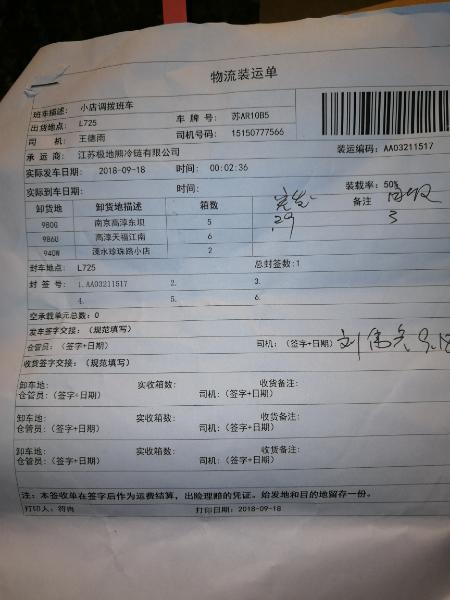 物流装运单
班车描述: 小店调拨班车
出货地点: L725 车 牌 号: 苏AR10B5
司 机: 王德雨 司机号码: 15150777566
承 运 商: 江苏极地熊冷链有限公司 装运编码: AA03211517
实际发车日期: 2018-09-18 时间: 00:02:36
实际到车日期: 时间: 装载率: 50%
卸货地 卸货地描述 箱数 备注
980G 南京高淳东坝 5 29 3
986U 高淳天福江南 6
940W 溧水珍珠路小店 2
封车地点: L725 总封签数:1
封 签 号: 1.AA03211517 2. 3.
4. 5. 6.
空承载单元总数: 0
发车签字交接: (规范填写)
仓管员: (签字+日期) 司机: (签字+日期) 9.18
收货签字交接: (规范填写)
卸车地: 实收箱数: 收货备注:
仓管员: (签字+日期) 司机: (签字+日期)
卸车地: 实收箱数: 收货备注:
仓管员: (签字+日期) 司机: (签字+日期)
卸车地: 实收箱数: 收货备注:
仓管员: (签字+日期) 司机: (签字+日期)
注: 本签收单在签字后作为运费结算, 出险理赔的凭证。始发地和目的地留存一份。
打印人: 符冉 打印日期: 2018-09-18